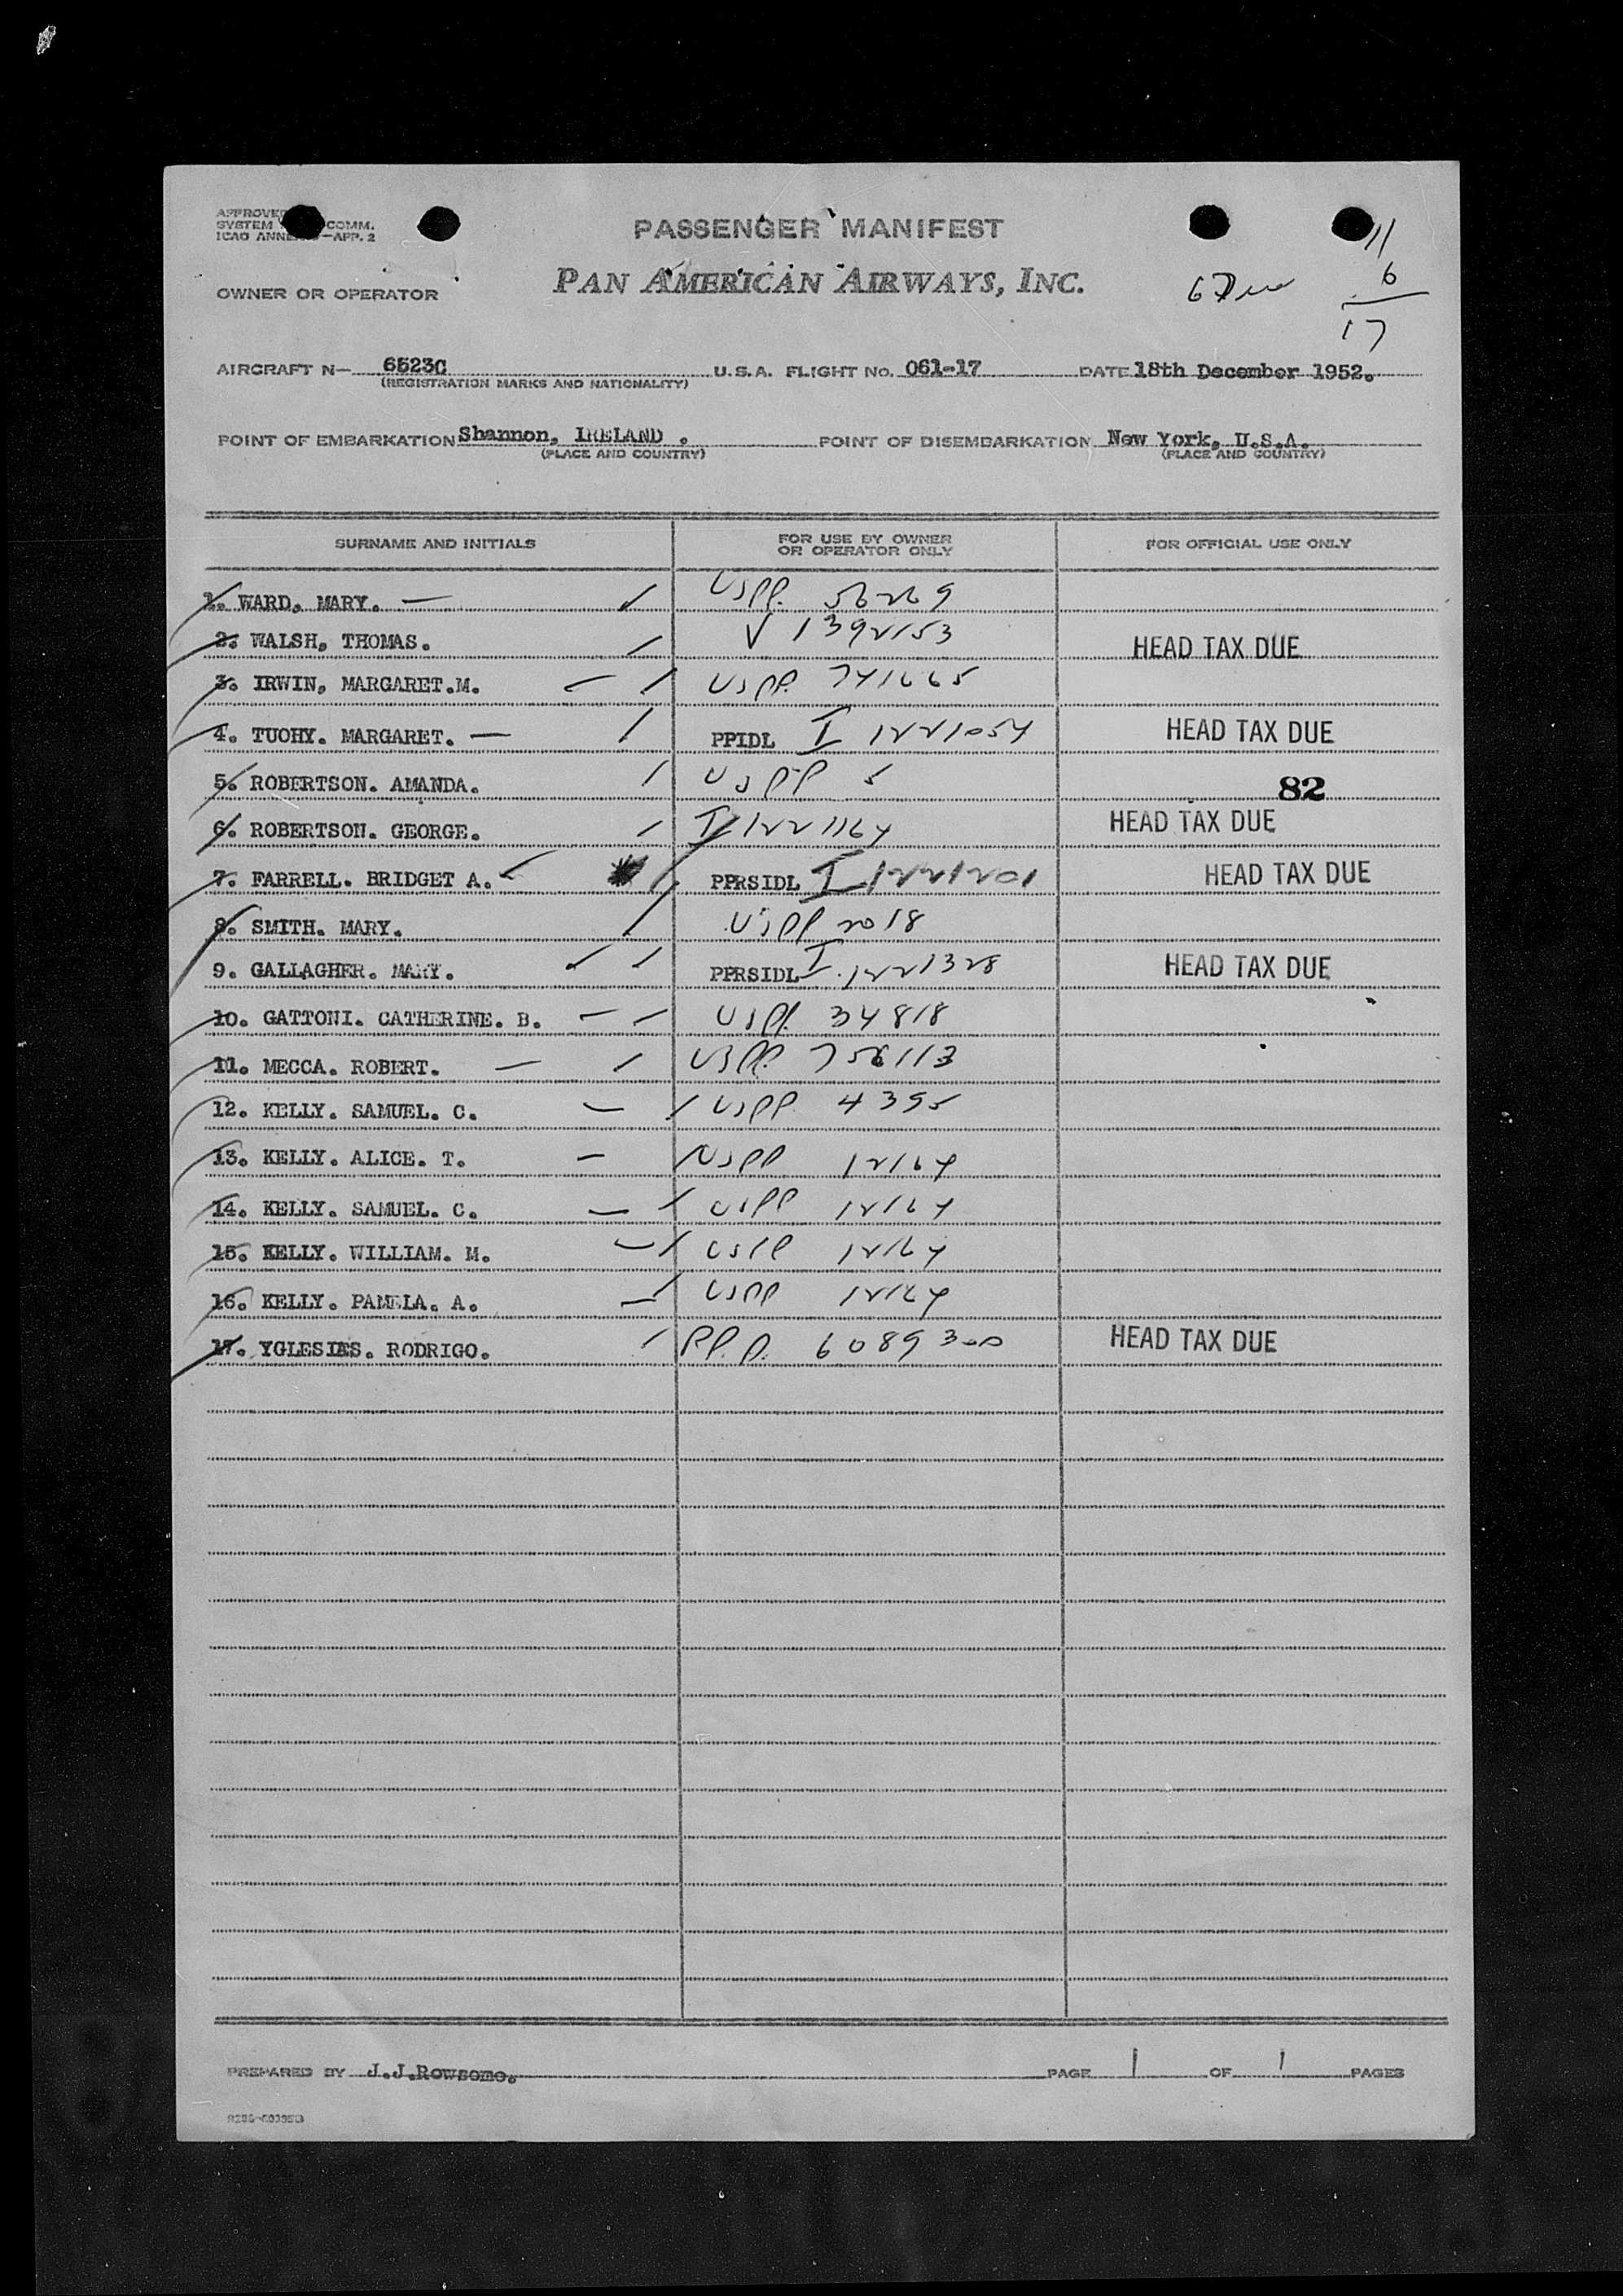 APPROVED
SYSTEM COMM.
ICAO ANNEX —APP. 2
PASSENGER MANIFEST
OWNER OR OPERATOR PAN AMERICAN AIRWAYS, INC.
11
6
17
AIRCRAFT N— 6523C U.S.A. FLIGHT No. 061-17 DATE 18th December 1952.
(REGISTRATION MARKS AND NATIONALITY)
POINT OF EMBARKATION Shannon, IRELAND . POINT OF DISEMBARKATION New York, U.S.A.
(PLACE AND COUNTRY) (PLACE AND COUNTRY)
SURNAME AND INITIALS FOR USE BY OWNER OR OPERATOR ONLY FOR OFFICIAL USE ONLY
1. WARD. MARY. USPP. 56269
2. WALSH, THOMAS. V 1392153 HEAD TAX DUE
3. IRWIN, MARGARET.M. USPP. 741665
4. TUOHY. MARGARET. PPIDL I 1221054 HEAD TAX DUE
5. ROBERTSON. AMANDA. USPP 5 82
6. ROBERTSON. GEORGE. I 1221164 HEAD TAX DUE
7. FARRELL. BRIDGET A. PPRSIDL I 1221201 HEAD TAX DUE
8. SMITH. MARY. USPP 2018
9. GALLAGHER. MARY. PPRSIDL I 1221328 HEAD TAX DUE
10. GATTONI. CATHERINE. B. USPP. 34818
11. MECCA. ROBERT. USPP. 756113
12. KELLY. SAMUEL. C. USPP 4395
13. KELLY. ALICE. T. USPP 12164
14. KELLY. SAMUEL. C. USPP 12164
15. KELLY. WILLIAM. M. USPP 12164
16. KELLY. PAMELA. A. USPP 12164
17. YGLESIAS. RODRIGO. P.P. 6089300 HEAD TAX DUE
PREPARED BY J.J.Rowsome. PAGE 1 OF 1 PAGES